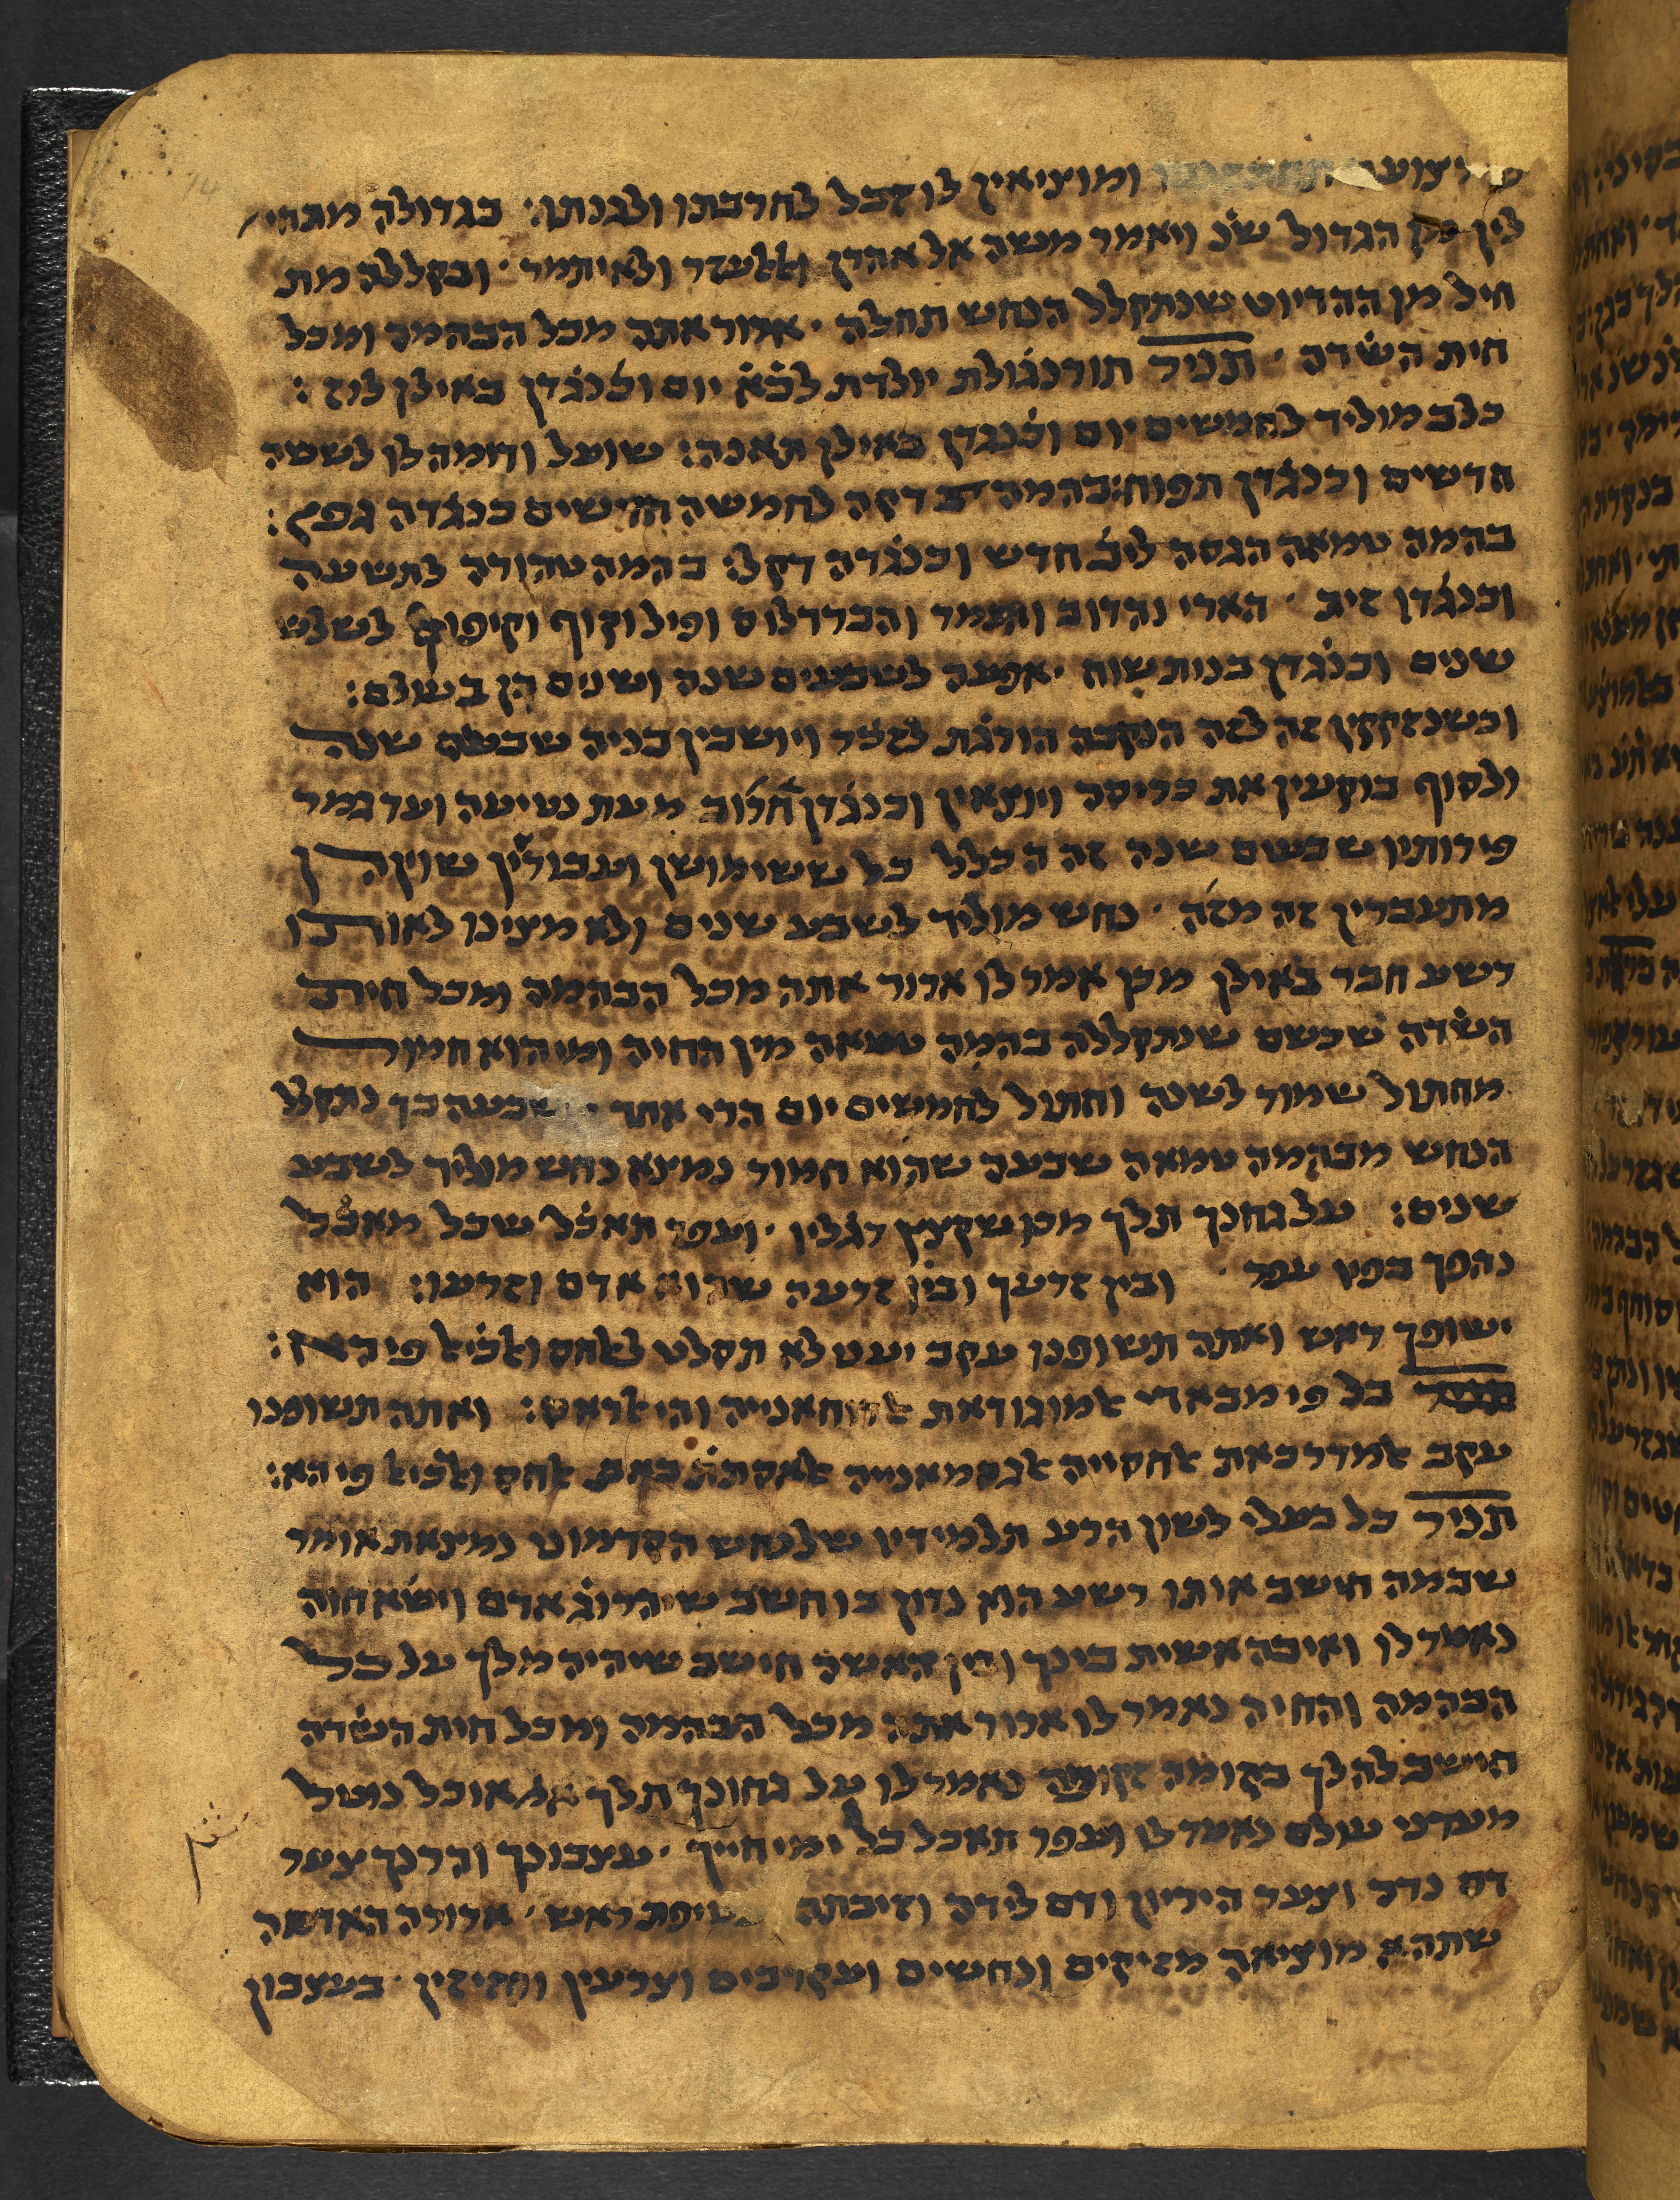 צוער ומוציאין לו זבל לחרבתו ולגנתו: בגדולה מתחי׳
לין מן הגדול שנ׳ ויאמר משה אל אהרן ולאלעזר ולאיתמר · ובקללה מת
חיל מן ההדיוט שנתקלל הנחש תחלה · ארור אתה מכל הבהמה ומכל
חית השדה · תניר תורנגולת יולדת לכא יום וכנגדן באילן לוז :
כלב מוליד לחמשים יום וכנגדן באילן תאנה : שועל ודומה לו לששה
חדשים וכנגדן תפוח : בהמה דקה לחמשה חדשים כנגדה גפן :
בהמה טמאה הגסה ליב חדש וכנגדה דקל׳ בהמה טהורה לתשעה
וכנגדן זית · הארי והדוב והנמר והברדלוס ופיל וקוף וקיפוף לשלש
שנים וכנגדן בנות שוח · אפעה לשבעים שנה ושנים הן בעולם :
וכשנזקקין זה לזה הנקבה הורגת לזכר ויושבין בניה שבעים שנה
ולסוף בוקעין את כריסה ויוצאין וכנגדן חרוב מעת נטיעה ועד גמר
פירותיו שבעים שנה זה הכלל כל ששימושן ועבורין שוין הן
מתעברין זה מזה · נחש מוליד לשבע שנים ולא מצינו לאותו
רשע חבר באילן מכן אמר לו ארור אתה מכל הבהמה ומכל חית
השדה שכשם שנתקללה בהמה טמאה מין החיה ומי הוא חמור
מחתול שמור לשנה וחתול לחמשים יום הרי אחד שבעה כך נתקלל
הנחש מבהמה טמאה שבעה שהוא חמור נמצא נחש מוליד לשבע
שנים : על גחנך תלך מכן שקצץ רגליו · ועפר תאכל שכל מאכל
נהפך בפיו עפר · ובין זרעך ובין זרעה שהוא אדם וזרעו : הוא
ישופך ראש ואתה תשופנו עקב יעט לא תסלט
כל פי מבאדי אמוגודאת והי אראס : ואתה תשופנו
עקב אמדרכאת אחסייה אגסמאנייה אחס ואכיאל פיהא :
תניר כל בעלי לשון הרע תלמידיו שלנחש הקדמוני נמצאת אומר
שבמה חישב אותו רשע הוא נדון בו חשב שיהרוג אדם וישא חוה
נאמר לו ואיבה אשית בינך ובין האשה חישב שיהיה מלך על כל
הבהמה והחיה נאמר לו ארור אתה מכל הבהמה ומכל חית השדה
חישב להלך בקומה זקופה נאמר לו על גחונך תלך אוכל
מעדני עולם נאמר לו ועפר תאכל כל ימי חייך · עצבונך והרנך צער
דם נדה וצער היריון ודם לידה ראש · ארורה האדמה
שתהא מוציאה מזיקים ונחשים ועקרבים וצרעין · בעצבון